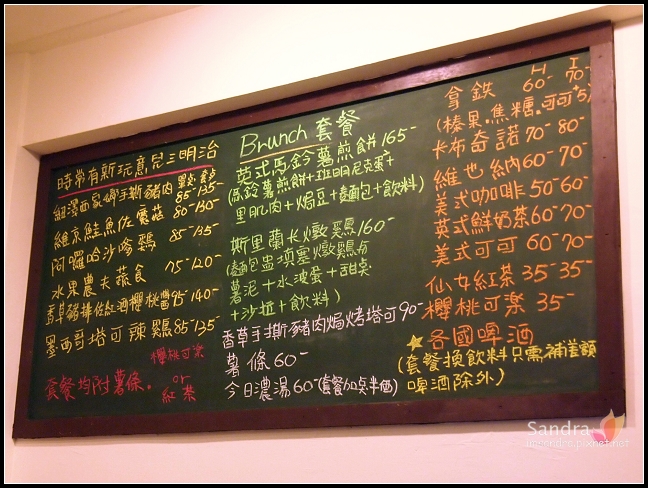 時常有新玩意兒三明治
單點 套餐
紐澳西家鄉手撕豬肉 85-135-
維京鮭魚佐霞菇 80-130-
阿囉哈沙嗲雞 85-135
水果農夫蔬食 75-120-
香草豬排佐紅酒櫻桃醬95-140-
墨西哥塔可辣雞85-135
套餐均附薯條.
櫻桃可樂
or
紅茶
Brunch 套餐
英式馬鈴薯煎餅165-
(馬鈴薯煎餅+班明尼克蛋+
里肌肉+焗豆+麵包+飲料)
斯里蘭卡燉雞160-
(麵包盅填塞燉雞與
薯泥+水波蛋+甜桌
+沙拉+飲料)
香草手撕豬肉焗烤塔可90-
薯條60-
今日濃湯60-(套餐加點半價)
H I
拿鐵 60- 70-
(榛果.焦糖.可可+5)
卡布奇諾70- 80-
維也納60- 70-
美式咖啡50-60-
英式鮮奶茶60-70-
美式可可 60-70-
仙女紅茶35-35-
櫻桃可樂 35-
☆各國啤酒
(套餐換飲料只需補差額
啤酒除外)
Sandra